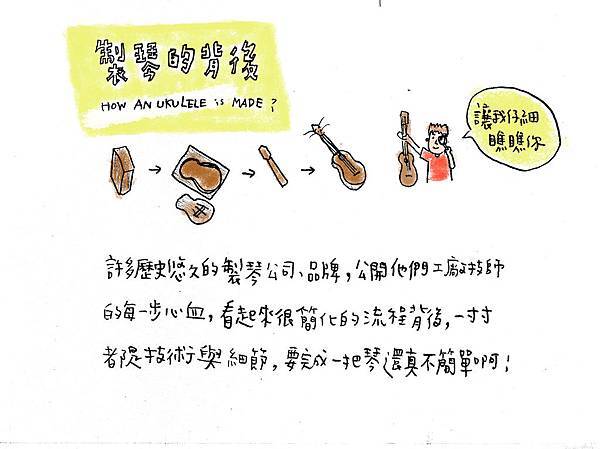 製琴的背後
HOW AN UKULELE is MADE?
讓我仔細
瞧瞧你
許多歷史悠久的製琴公司、品牌，公開他們工廠技師
的每一步心血，看起來很簡化的流程背後，一寸寸
都是技術與細節，要完成一把琴還真不簡單啊！